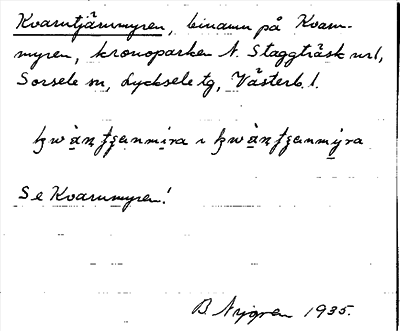 Kvarntjärnmyren, binamn på Kvarn-
myren, kronoparken N. Staggträsk nr 1,
Sorsele sn, Lycksele tg, Västerb. l.
Se Kvarnmyren!
B. Nygren 1935.